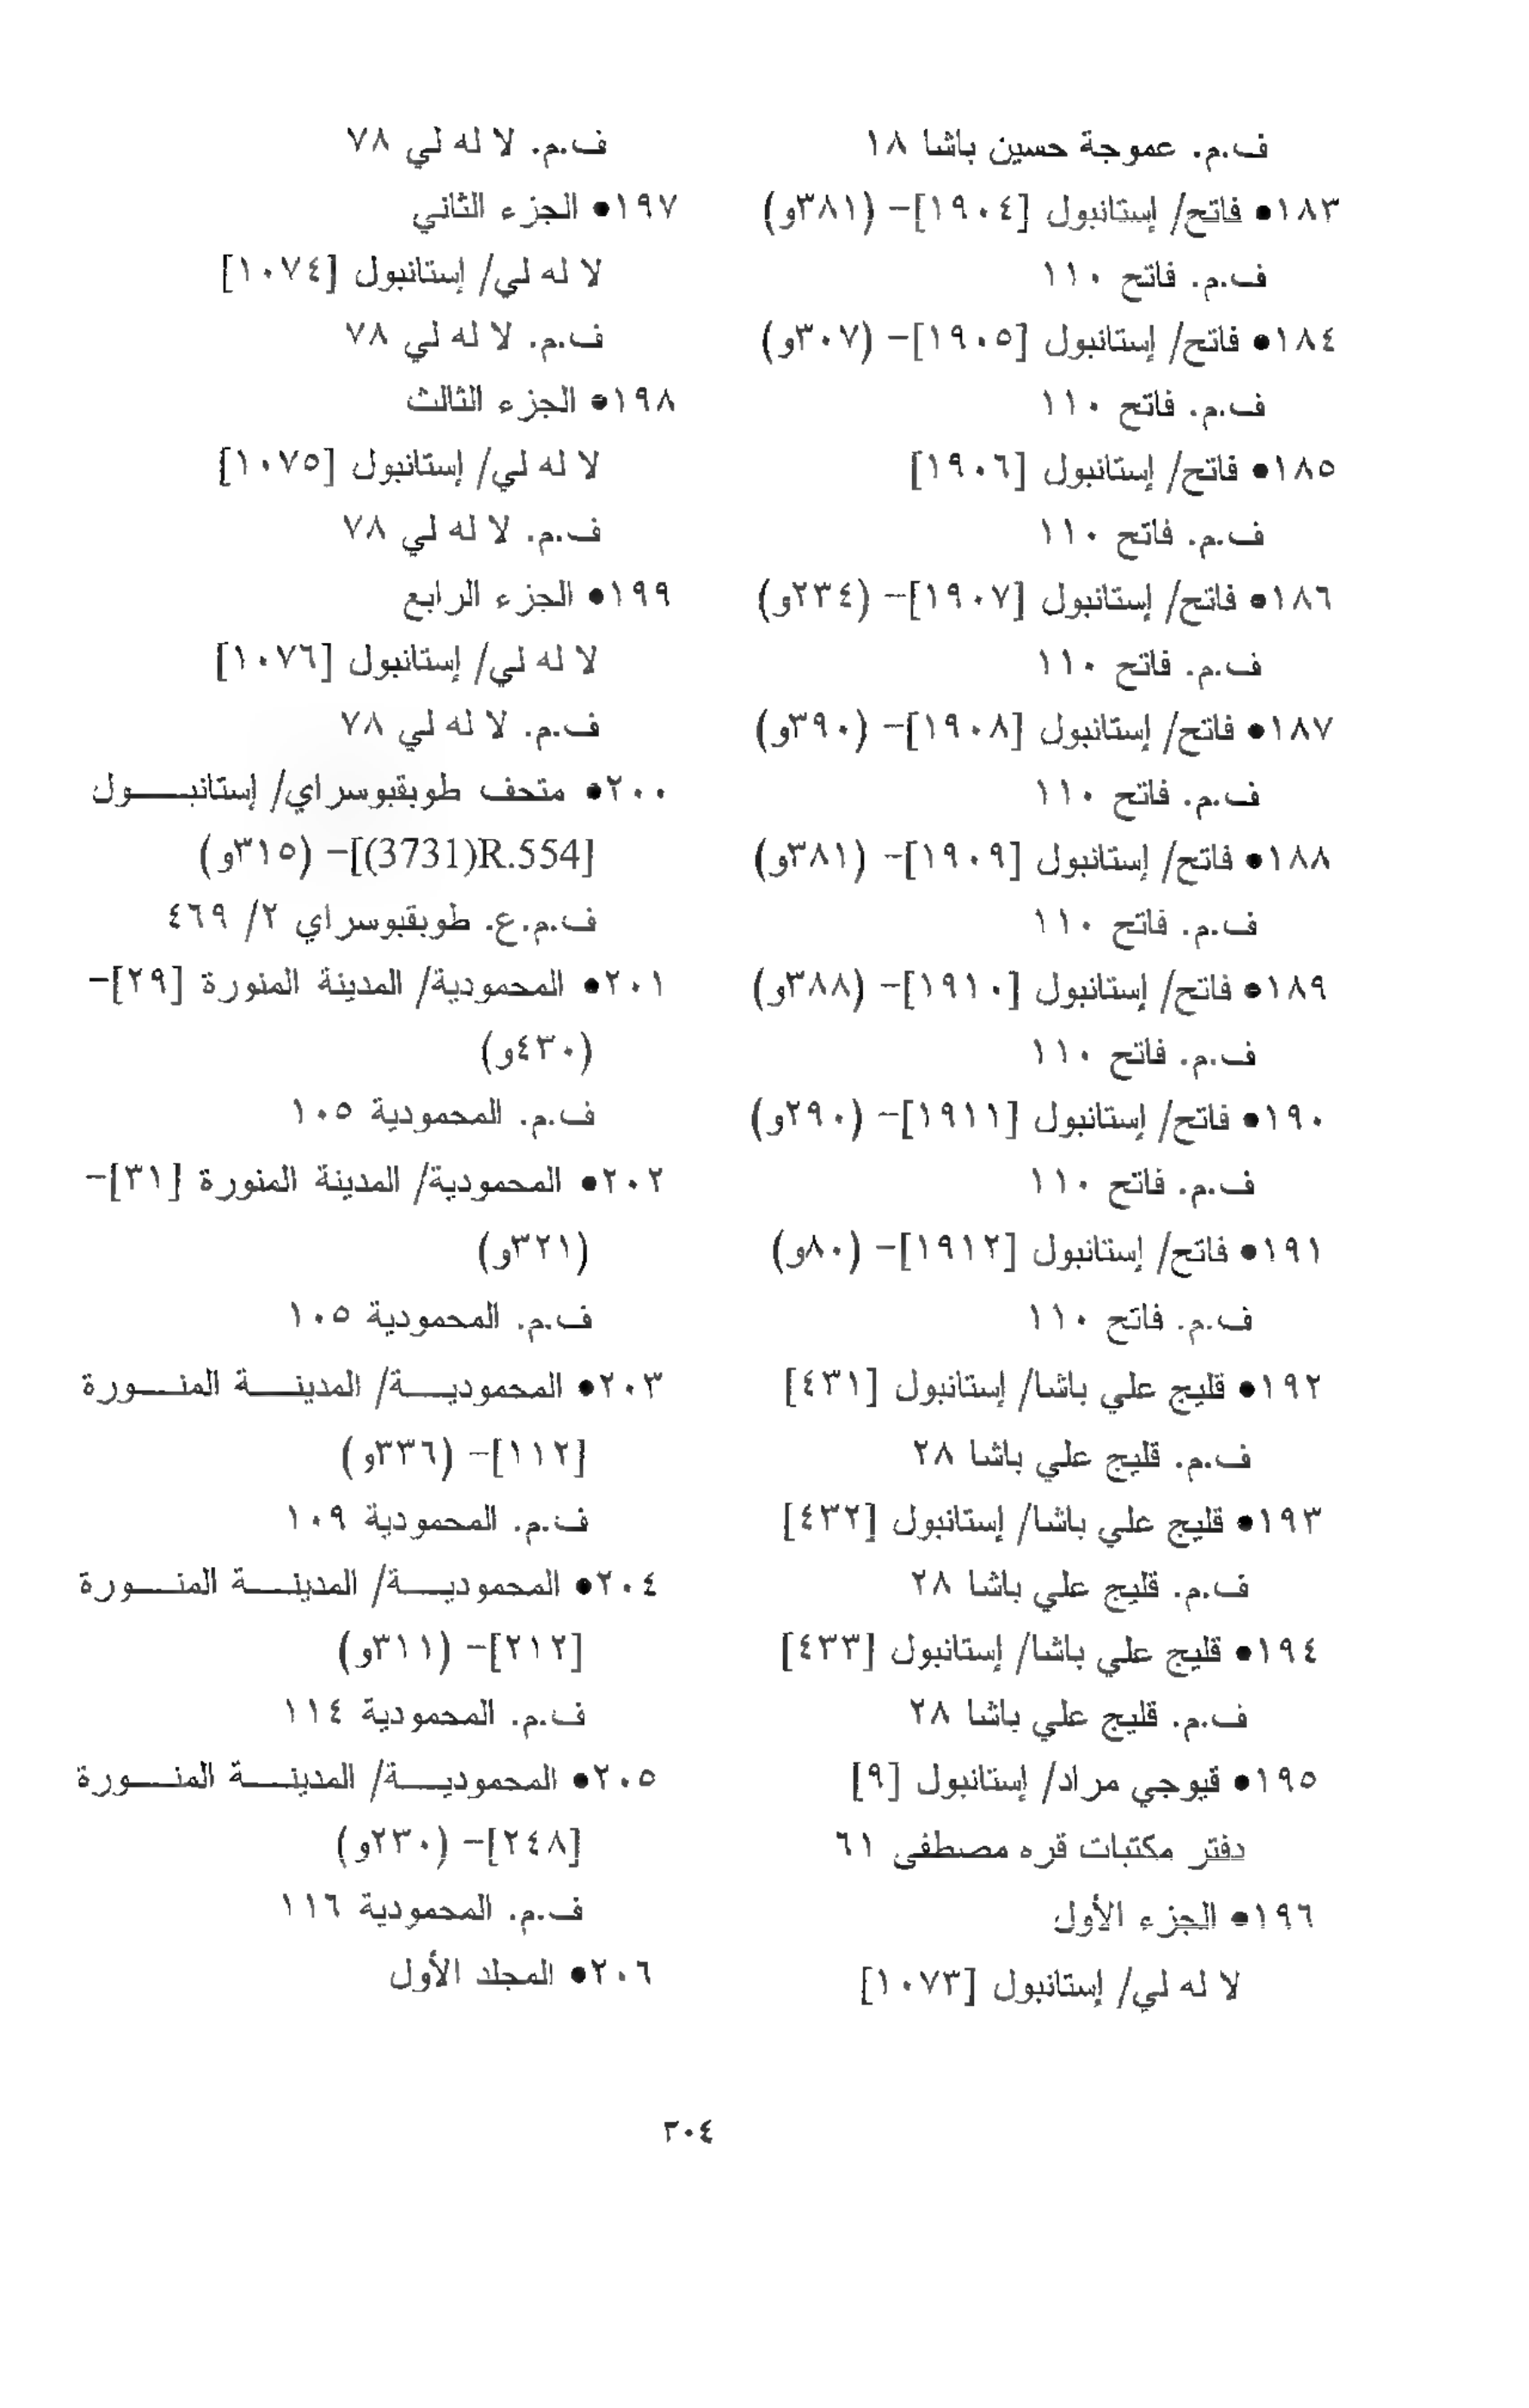 ف.م. عموجة حسين باشا ١٨
١٨٣● فاتح/ إستانبول [١٩٠٤]- (٣٨١و)
ف.م. فاتح ١١٠
١٨٤● فاتح/ إستانبول [١٩٠٥]- (٣٠٧و)
ف.م. فاتح ١١٠
١٨٥● فاتح/ إستانبول [١٩٠٦]
ف.م. فاتح ١١٠
١٨٦● فاتح/ إستانبول [١٩٠٧]- (٢٣٤و)
ف.م. فاتح ١١٠
١٨٧● فاتح/ إستانبول [١٩٠٨]- (٣٩٠و)
ف.م. فاتح ١١٠
١٨٨● فاتح/ إستانبول [١٩٠٩]- (٣٨١و)
ف.م. فاتح ١١٠
١٨٩● فاتح/ إستانبول [١٩١٠]- (٣٨٨و)
ف.م. فاتح ١١٠
١٩٠● فاتح/ إستانبول [١٩١١]- (٢٩٠و)
ف.م. فاتح ١١٠
١٩١● فاتح/ إستانبول [١٩١٢]- (٨٠و)
ف.م. فاتح ١١٠
١٩٢● قليج علي باشا/ إستانبول [٤٣١]
ف.م. قليج علي باشا ٢٨
١٩٣● قليج علي باشا/ إستانبول [٤٣٢]
ف.م. قليج علي باشا ٢٨
١٩٤● قليج علي باشا/ إستانبول [٤٣٣]
ف.م. قليج علي باشا ٢٨
١٩٥● قيوجي مراد/ إستانبول [٩]
دفتر مكتبات قره مصطفى ٦١
١٩٦● الجزء الأول
لا له لي/ إستانبول [١٠٧٣]
ف.م. لا له لي ٧٨
١٩٧● الجزء الثاني
لا له لي/ إستانبول [١٠٧٤]
ف.م. لا له لي ٧٨
١٩٨● الجزء الثالث
لا له لي/ إستانبول [١٠٧٥]
ف.م. لا له لي ٧٨
١٩٩● الجزء الرابع
لا له لي/ إستانبول [١٠٧٦]
ف.م. لا له لي ٧٨
٢٠٠● متحف طوبقبوسراي/ إستانبـــول
[R.554(3731)]- (٣١٥و)
ف.م.ع. طوبقبوسراي ٢/ ٤٦٩
٢٠١● المحمودية/ المدينة المنورة [٢٩]-
(٤٣٠و)
ف.م. المحمودية ١٠٥
٢٠٢● المحمودية/ المدينة المنورة [٣١]-
(٣٢١و)
ف.م. المحمودية ١٠٥
٢٠٣● المحموديـــة/ المدينـــة المنـــورة
[١١٢]- (٣٣٦و)
ف.م. المحمودية ١٠٩
٢٠٤● المحموديـــة/ المدينـــة المنـــورة
[٢١٢]- (٣١١و)
ف.م. المحمودية ١١٤
٢٠٥● المحموديـــة/ المدينـــة المنـــورة
[٢٤٨]- (٢٣٠و)
ف.م. المحمودية ١١٦
٢٠٦● المجلد الأول
٣٠٤